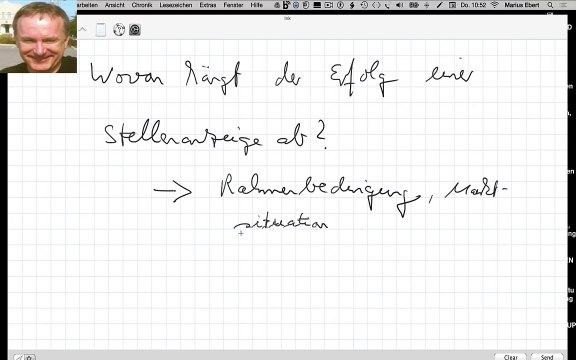 arbeiten Ansicht Chronik Lesezeichen Extras Fenster Hilfe Do. 10:52 Marius Ebert
Ink
Wovon hängt der Erfolg einer
Stellenanzeige ab?
→ Rahmenbedingung, Markt-
situation
Clear Send